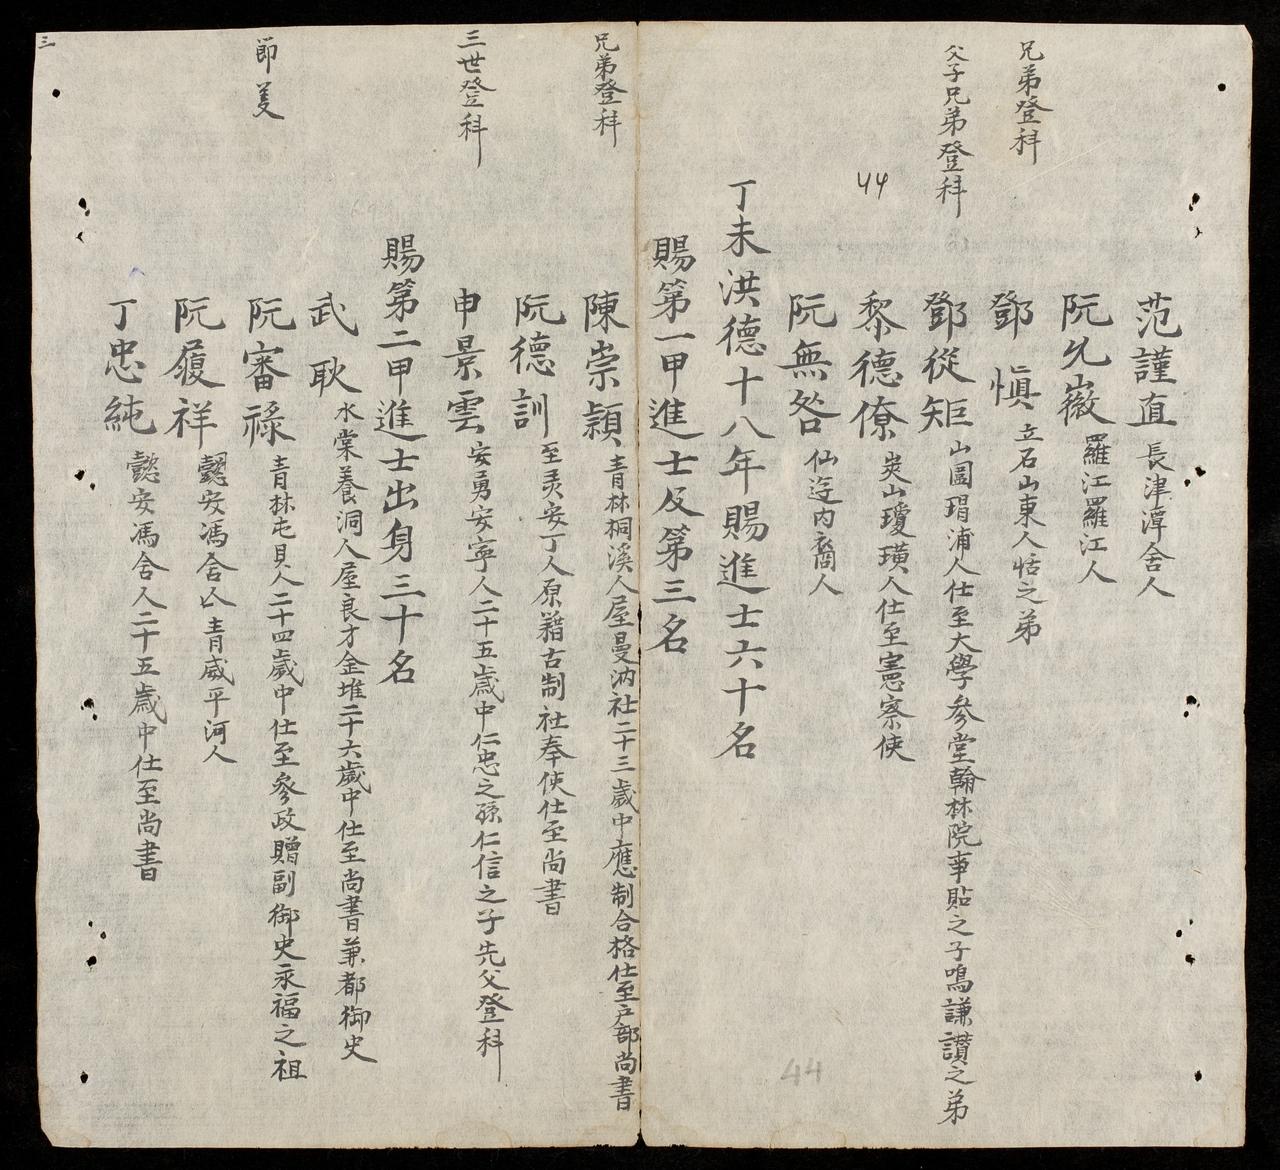 范謹直 長津潭舍人
阮允嶶 羅江羅江人
兄弟登科
鄧慎 立石山東人恬之弟
父子兄弟登科
鄧從矩 山圍琄浦人仕至大學參堂翰林院事貼之子鳴謙讚之弟
44
黎德僚 炭山瓊璜人仕至憲察使
阮無咎 仙逰內裔人
丁未洪德十八年賜進士六十名
賜第一甲進士及第三名
兄弟登科
陳崇穎 青林桐溪人屋曼汭社二十三歲中應制合格仕至戶部尚書
阮德訓 至灵安丁人原籍古制社奉使仕至尚書
三世登科
申景雲 安勇安寜人二十五歲中仁忠之孫仁信之子先父登科
賜第二甲進士出身三十名
武耿 水棠養洞人屋良才金堆二十六歲中仕至尚書兼都御史
節羙
阮審祿 青林屯貝人二十四歲中仕至參政贈副御史永福之祖
阮蕧祥 懿安馮舍人 青威平河人
丁忠純 懿安馮舍人二十五歲中仕至尚書
三
44